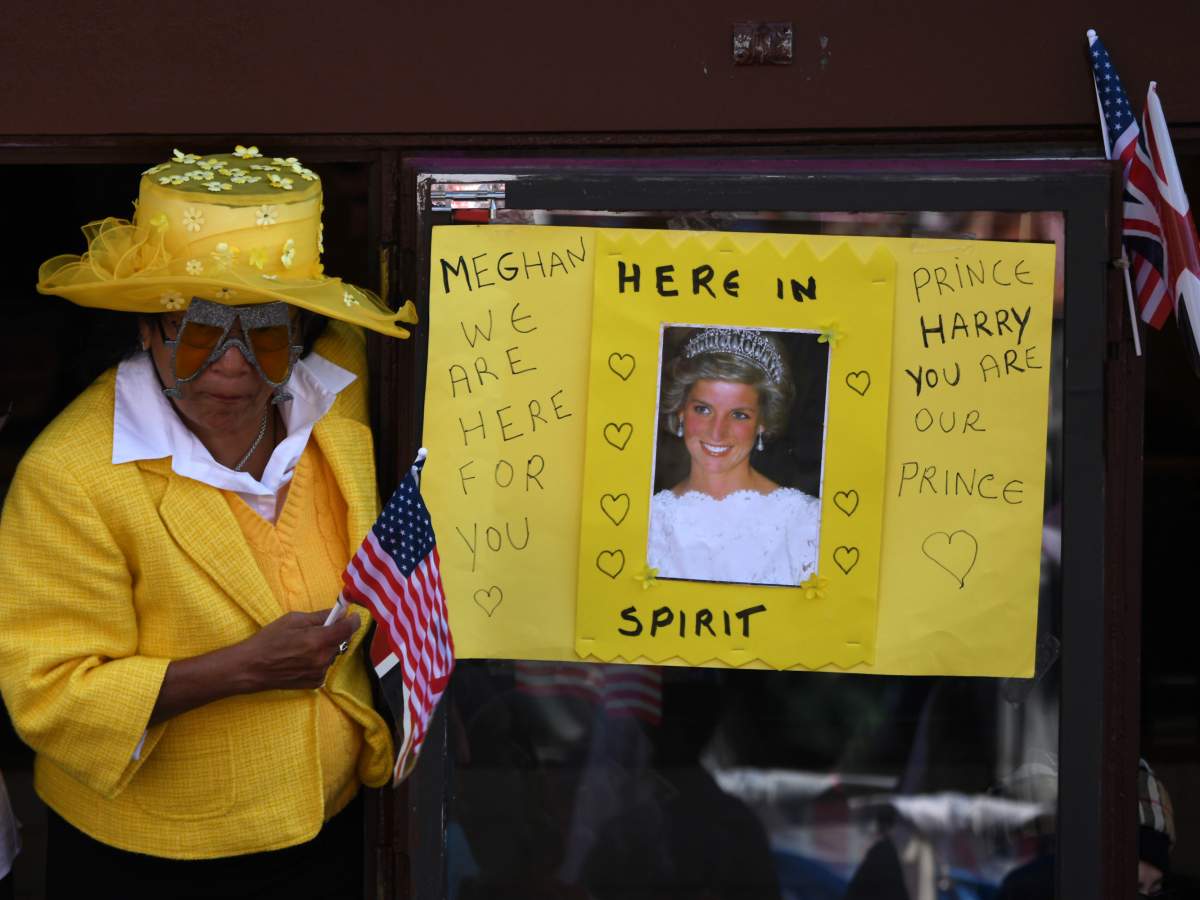 MEGHAN
WE
ARE
HERE
FOR
YOU
HERE IN
SPIRIT
PRINCE
HARRY
YOU ARE
OUR
PRINCE